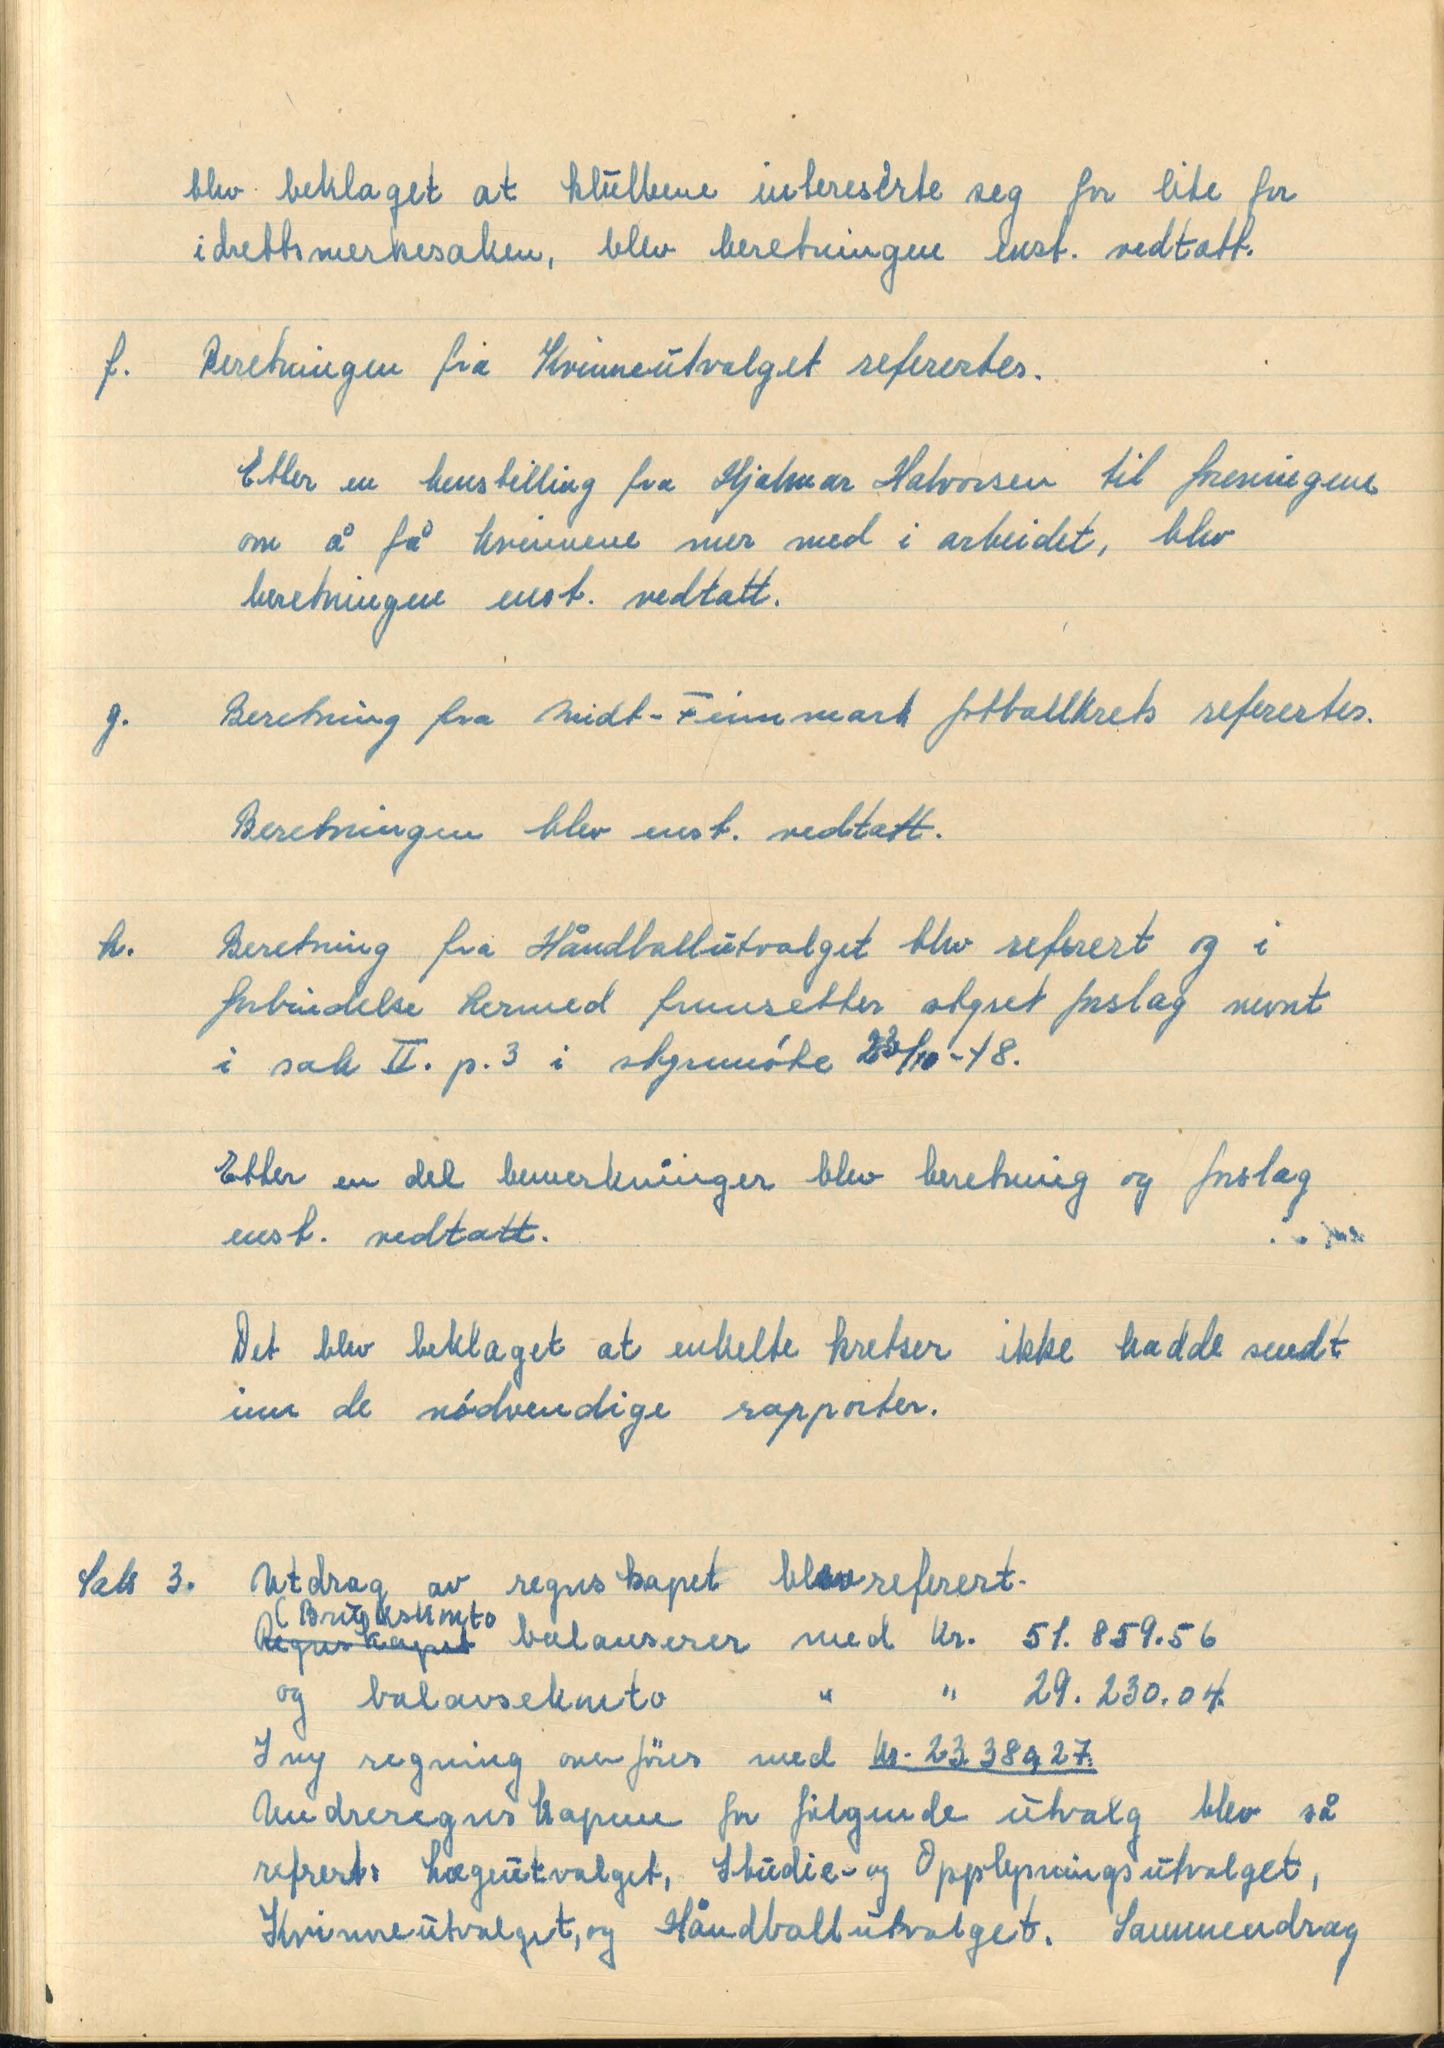 blev beklaget at klubbene intereserte seg for lite for
idrettsmerkesaken, blev beretningen enst. vedtatt.
f. Beretningen fra Kvinneutvalget refertes.
Etter en henstilling fra Hjalmar Halvorsen til foreningene
om å få kvinnene mer med i arbeidet, blev
beretningen enst. vedtatt.
g. Beretning fra Midt-Finnmark fotballkrets refertes.
Beretningen blev enst. vedtatt.
h. Beretning fra Håndballutvalget blev referert og i
forbindelse hermed fremsetter styret forslag nevnt
i sak II. p. 3 i styremöte 23/10-48.
Etter en del bemerkninger blev beretning og forslag
enst. vedtatt.
Det blev beklaget at enkelte kretser ikke hadde sendt
inn de nödvendige rapporter.
Sak 3. Utdrag av regnskapet blev referert.
(Brukskonto
Regnskapet balanserer med kr. 51.859.56
og balansekonto " " 29.230.04
I ny regning overföres med kr. 23.389,27.
Underregnskapene for fölgende utvalg blev så
refrert: Lægeutvalget, Studie- og Opplysningsutvalget,
Kvinneutvalget, og Håndballutvalget. Sammendrag